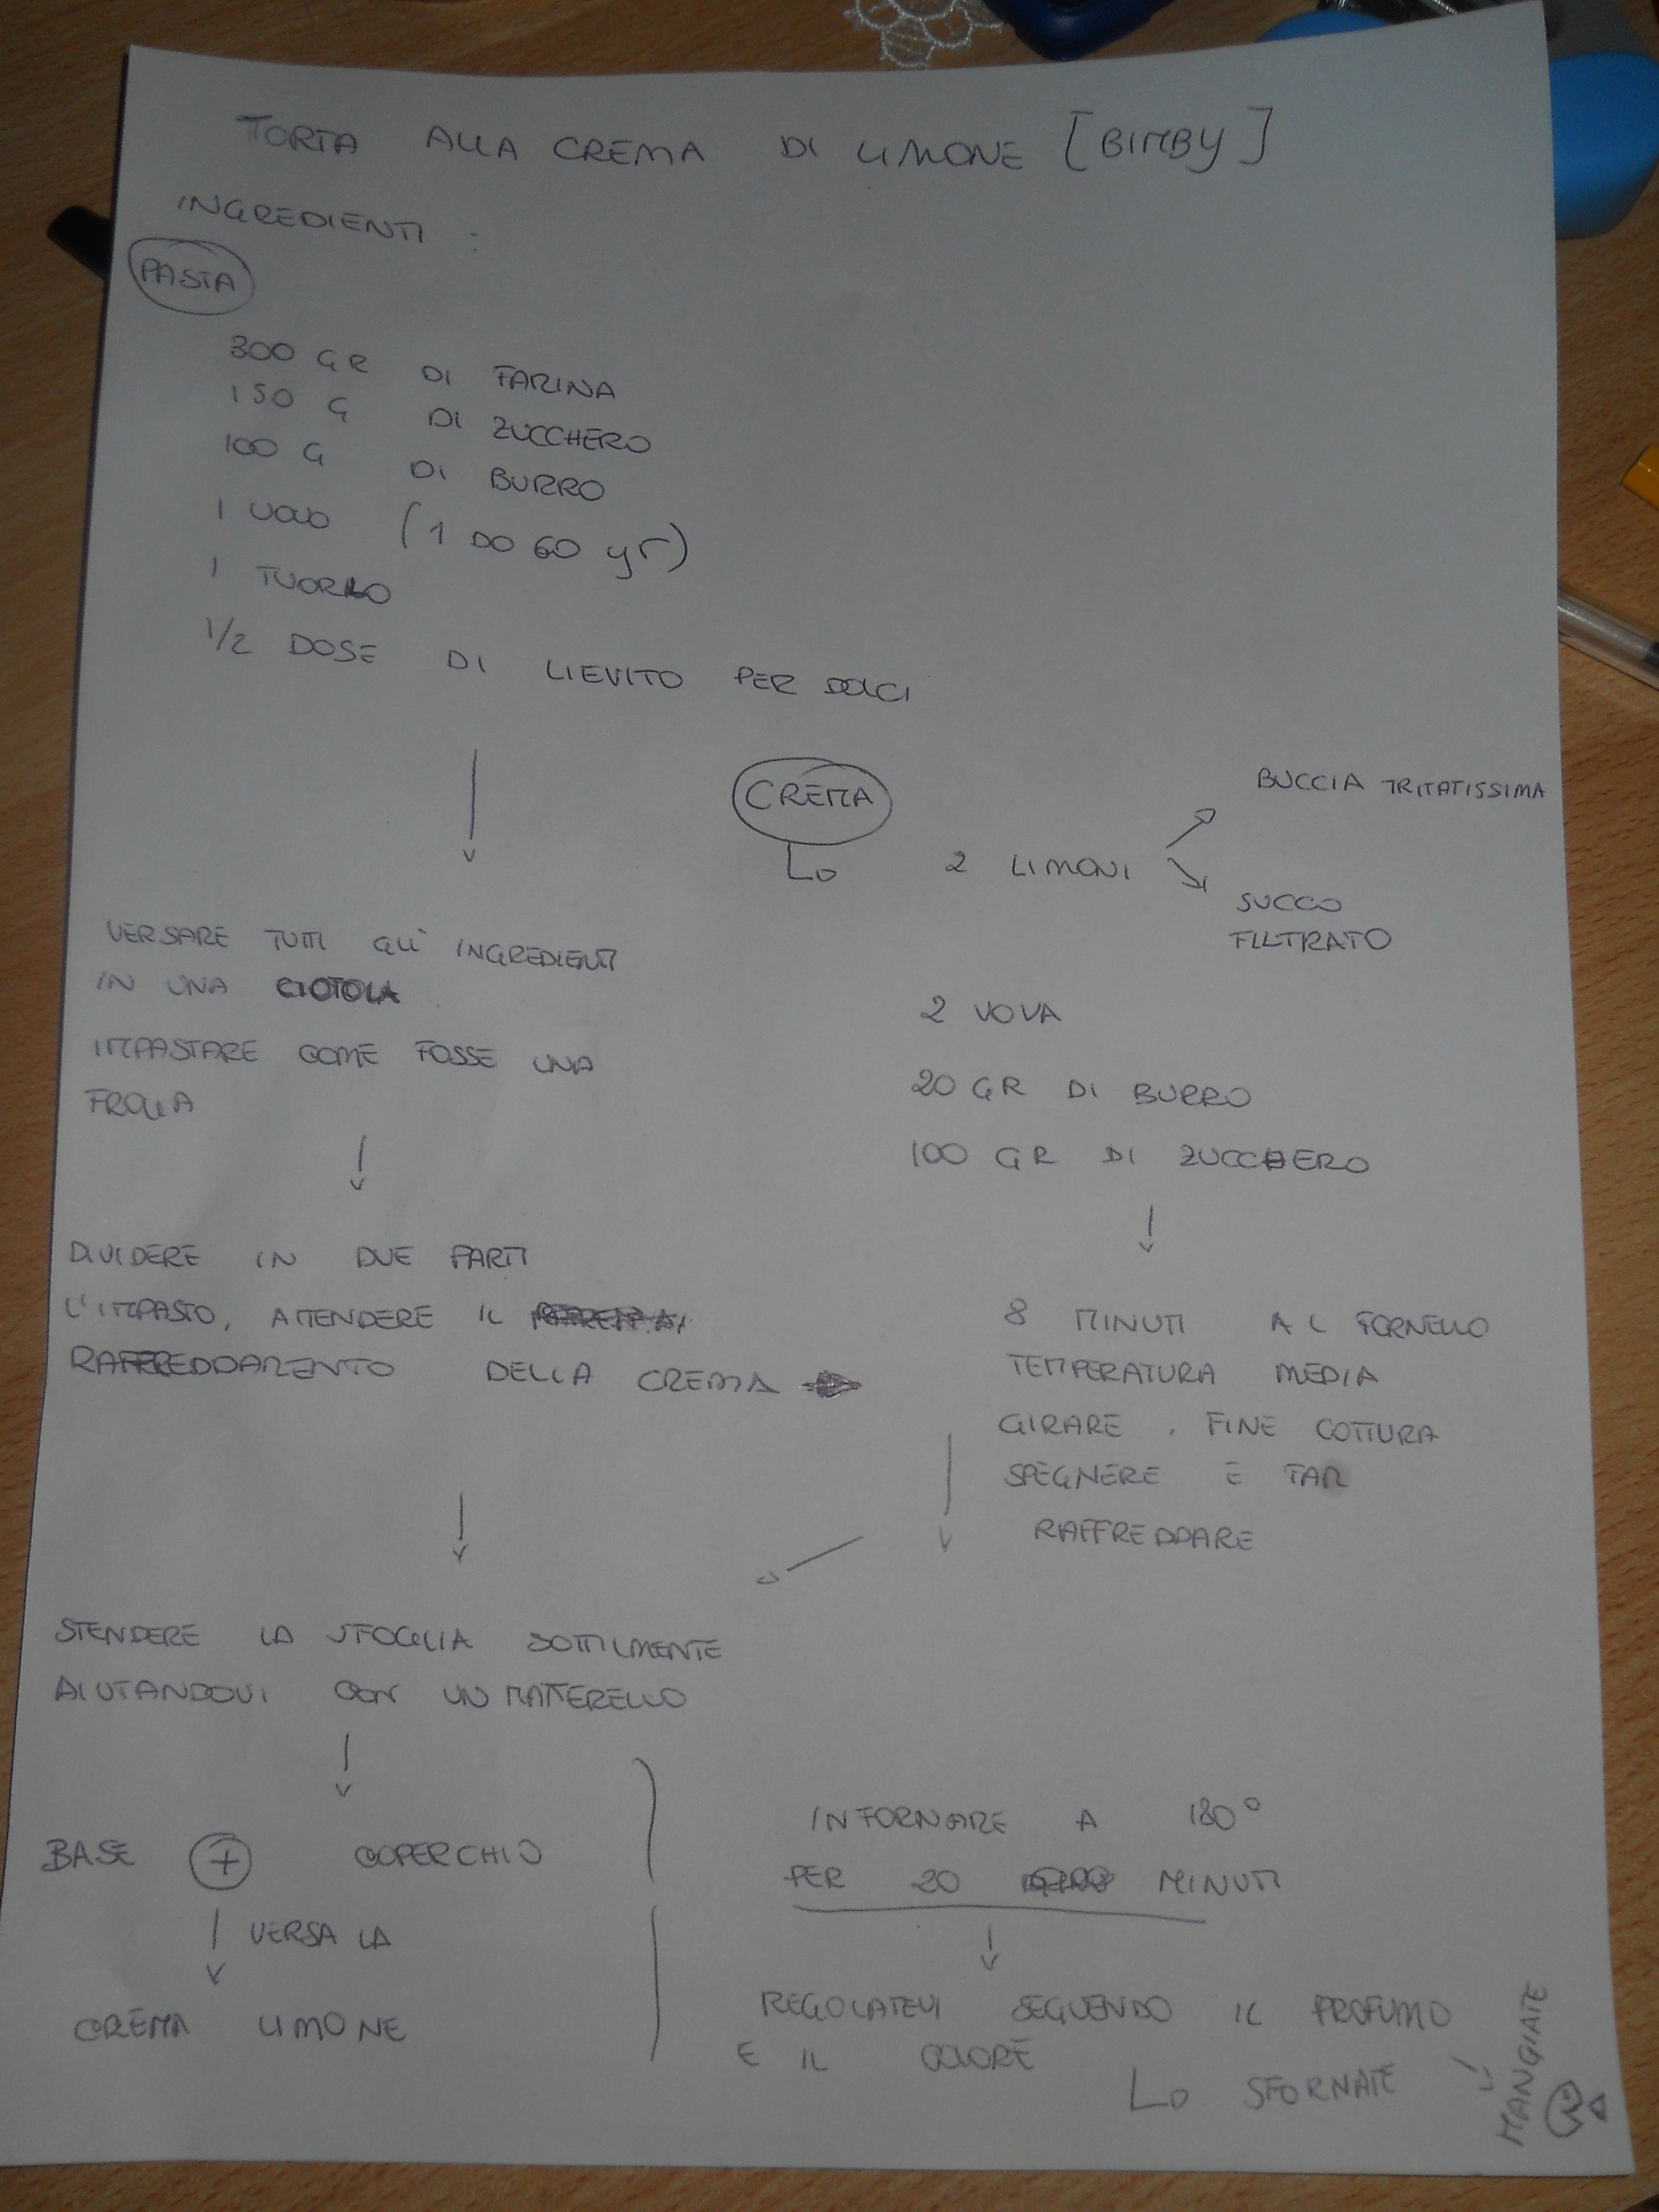 TORTA ALLA CREMA DI LIMONE [BIMBY]
INGREDIENTI :
PASTA
300 GR DI FARINA
150 G DI ZUCCHERO
100 G DI BURRO
1 UOVO (1 DO 60 gr)
1 TUORLO
1/2 DOSE DI LIEVITO PER DOLCI
VERSARE TUTTI GLI INGREDIENTI
IN UNA CIOTOLA
IMPASTARE COME FOSSE UNA
FROLLA
DIVIDERE IN DUE PARTI
L'IMPASTO, ATTENDERE IL
RAFFREDDAMENTO DELLA CREMA
CREMA
2 LIMONI
BUCCIA TRITATISSIMA
SUCCO
FILTRATO
2 UOVA
20 GR DI BURRO
100 GR DI ZUCCHERO
8 MINUTI AL FORNELLO
TEMPERATURA MEDIA
GIRARE . FINE COTTURA
SPEGNERE E FAR
RAFFREDDARE
STENDERE LA SFOGLIA SOTTILMENTE
AIUTANDOVI CON UN MATTERELLO
BASE + COPERCHIO
VERSA LA
CREMA LIMONE
INFORNARE A 180°
PER 20 MINUTI
REGOLATEVI SEGUENDO IL PROFUMO
E IL COLORE
SFORNATE
MANGIATE